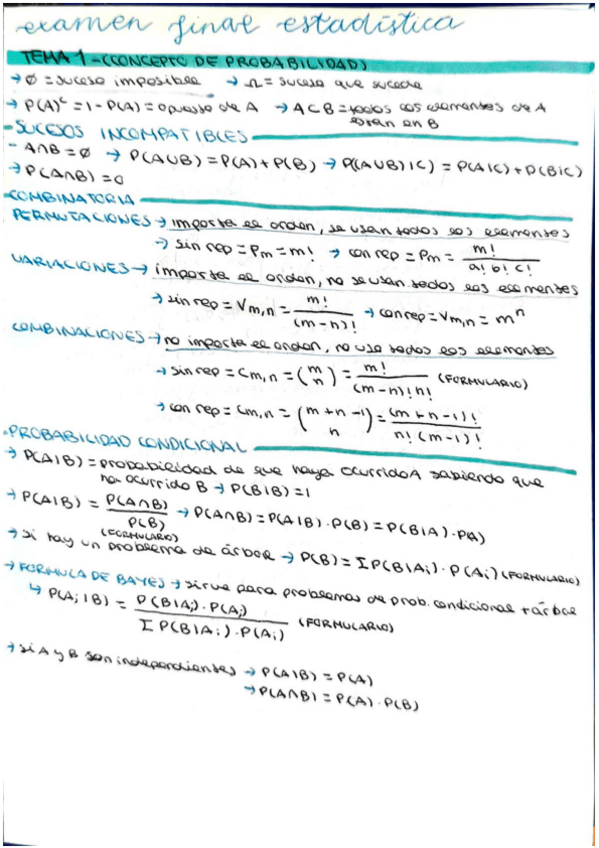 examen final estadística
TEMA 1 - (CONCEPTO DE PROBABILIDAD)
→ Ø = suceso imposible → Ω = suceso que sucede
→ P(A)ᶜ = 1 - P(A) = opuesto de A → A⊂B = todos los elementos de A
están en B
- SUCESOS INCOMPATIBLES
- A∩B = Ø → P(A∪B) = P(A) + P(B) → P(A∪B)|C) = P(A|C) + P(B|C)
→ P(A∩B) = 0
- COMBINATORIA
PERMUTACIONES → importa el orden, se usan todos los elementos
→ sin rep = Pm = m! → con rep = Pm = m! / a! b! c!
VARIACIONES → importa el orden, no se usan todos los elementos
→ sin rep = Vm,n = m! / (m-n)! → con rep = Vm,n = mⁿ
COMBINACIONES → no importa el orden, no usa todos los elementos
→ sin rep = Cm,n = (m n) = m! / (m-n)! n! (FORMULARIO)
→ con rep = Cm,n = (m+n-1 n) = (m+n-1)! / n! (m-1)!
- PROBABILIDAD CONDICIONAL
→ P(A|B) = probabilidad de que haya ocurrido A sabiendo que
ha ocurrido B → P(B|B) = 1
→ P(A|B) = P(A∩B) / P(B) → P(A∩B) = P(A|B) · P(B) = P(B|A) · P(A)
(FORMULARIO)
→ si hay un problema de árbol → P(B) = Σ P(B|Ai) · P(Ai) (FORMULARIO)
→ FORMULA DE BAYES → sirve para problemas de prob. condicional + árbol
↳ P(Ai|B) = P(B|Ai) · P(Ai) / Σ P(B|Ai) · P(Ai) (FORMULARIO)
→ si A y B son independientes → P(A|B) = P(A)
→ P(A∩B) = P(A) · P(B)